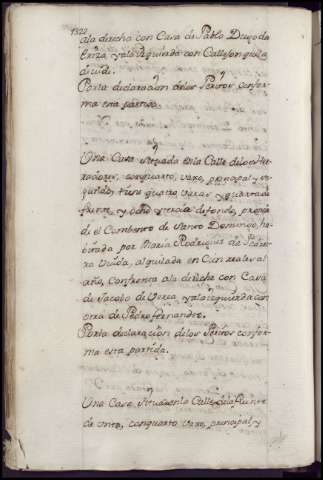 1320
ala derecha con Casa de Pablo Diego de
y ala izquierda con Callejon que la
divide.
Porta declarazion delos Peritos confor-
ma esta partida.
Una Casa Situada en la Calle delos He-
rradores, con quarto vaxo, principal y se-
gundo, tiene quatro varas y quarta de
frente, y ocho y tercia de fondo, propia
de el Combento de Santo Domingo, ha-
bitada por Maria Rodriguez de
Viuda, alquilada en Cien reales al
año, Confronta ala derecha con Casa
de Jacobo de Varea y ala izquierda con
otra de Pedro Fernandez.
Porta declarazion delos Peritos confor-
ma esta partida.
Una Casa Situada en la Calle dela Fuente
de con quarto vaxo, principal y